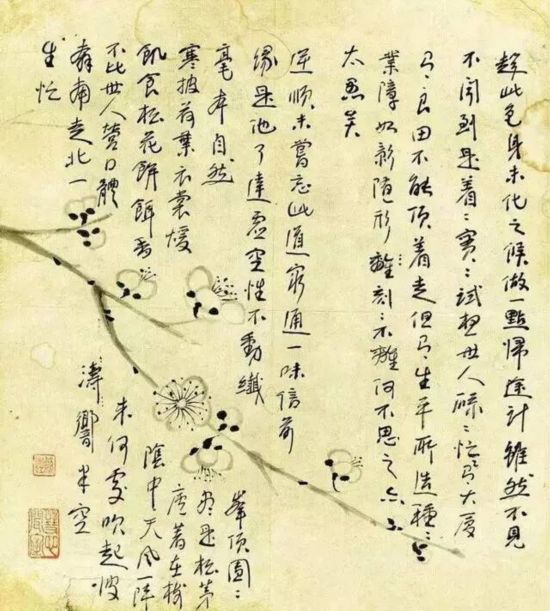 趁此色身未化之候做一點歸途計雖然不見
不聞到是着々實々試想世人碌々忙為大廈
良田不能頂着走但生平所造種々
業障如影隨形刻々不離何不思之亦
太愚矣
逆順未嘗忘此道窮通一味信前
緣是他了達虛空性不動纖
毫本自然
寒披荷葉衣裳煖
飢食松花餅餌香
不比世人營口體
奔南走北一
生忙
峯頂團々
盡是松茅
廬著在
陰中天風一陣
來何處吹起波
濤響半空